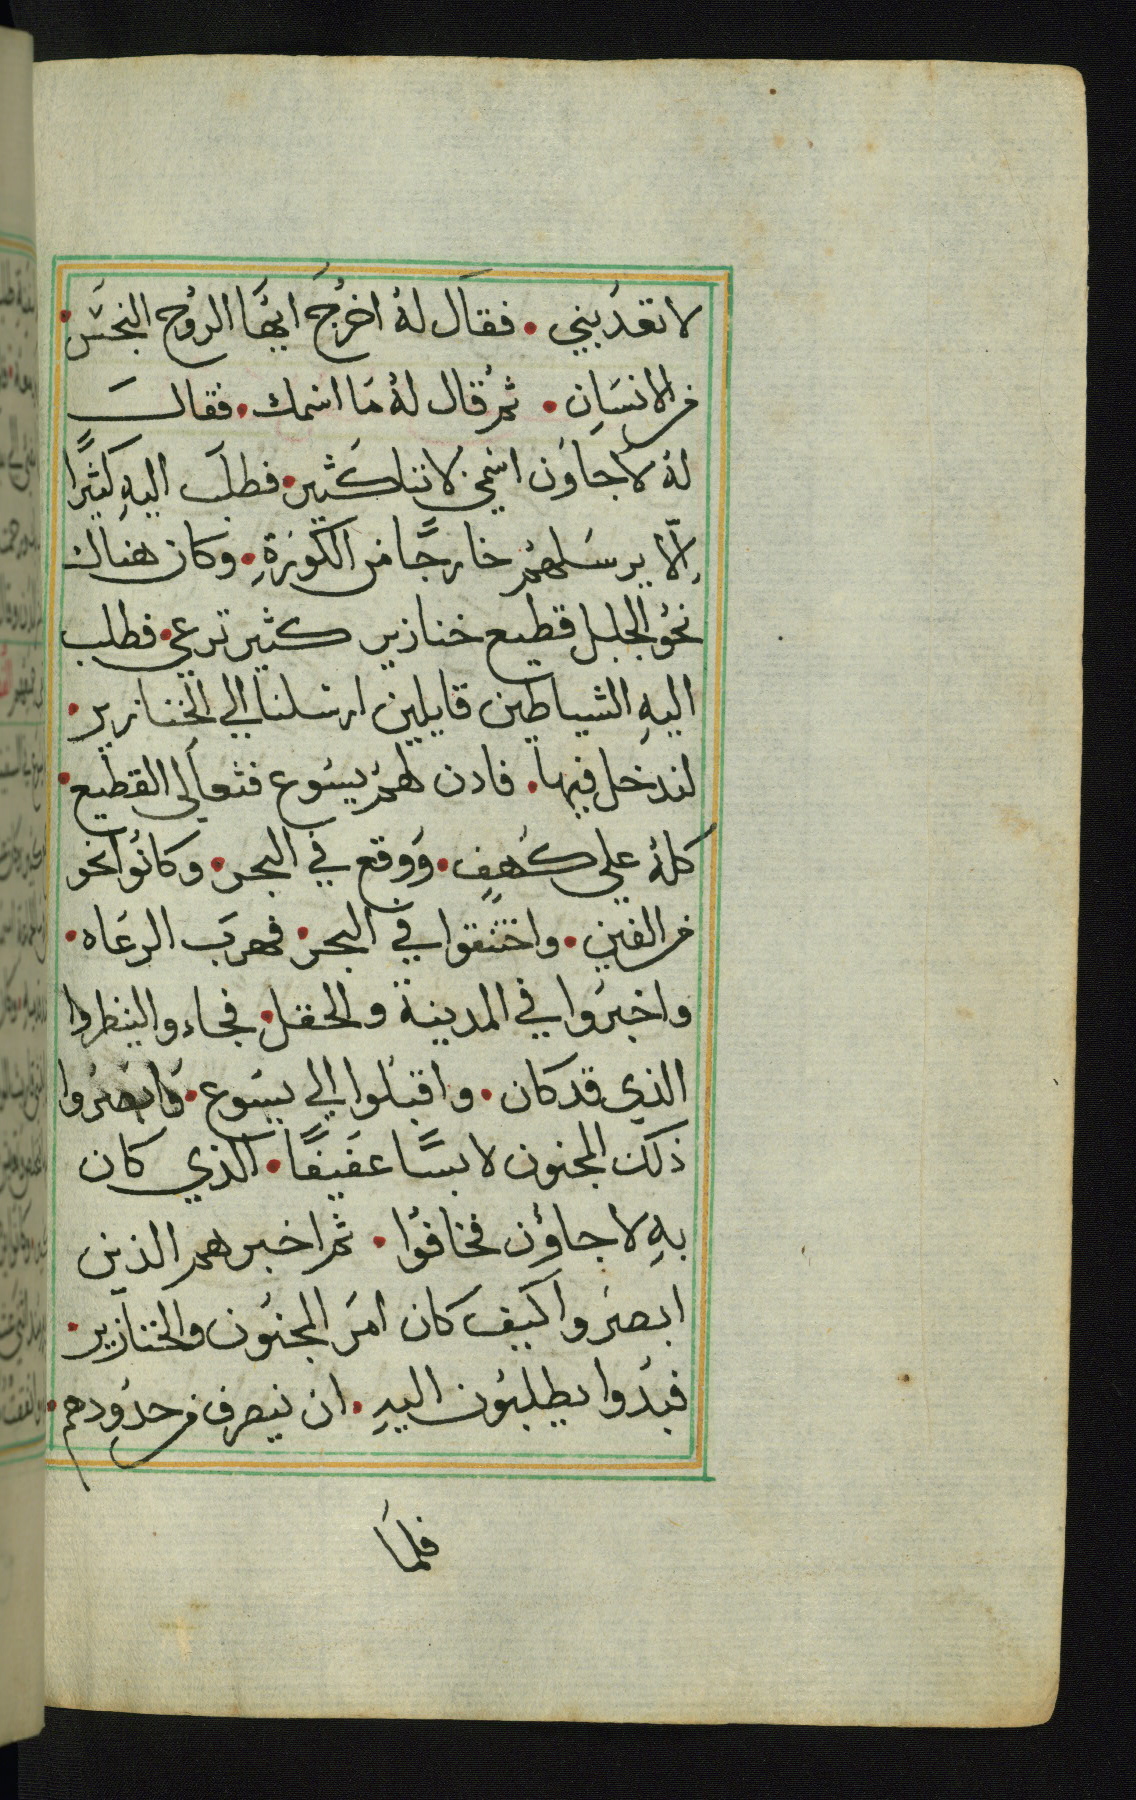 لا تعذبني • فقال لهُ اخرُج ايُّها الروُح النجس •
من الانسَانِ • ثمُ قال لهُ مَا اسمك • فقالَ
لهُ لاجاوُن اسمي لاننا كثير • فطلبَ اليهِ كثيرًا
اِلّا يرسَلهُمُ خارجًا من الكُورَةِ • وكان هناك
نحوُ الجبل قطيع خنازير كثير ترعي • فطلب
اليهِ الشياطين قايلين ارسلنا الي الخنازير •
لندخل فيها • فاذن لهمُ يسُوع فثوا لي القطيع •
كلهُ علي كهفٍ • ووقع في البحر • وكانوُا نحو
من الفين • واختنقوا في البحر • فهربَ الرعَاه •
واخبرَوا في المدينة والحقل • فجاءوا لينظروا
الذي قد كان • واقبلوا الي يسُوع • فابصَرُوا
ذلك المجنون لابسًا عفيفًا • الذي كان
بهِ لاجاؤن فخافوُا • ثمُ اخبرهمُ الذين
ابصرَوا كيفَ كان امرَ المجنُون والخنازير •
فبدُوا يطلبُون اليهِ • ان ينصرف من حدُودهم •
فلمَا